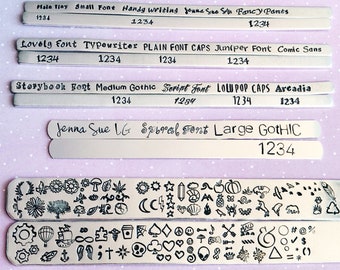 Plain Tiny Small Font Handy Writing Jenna Sue Sm Fancy Pants
1234 1234
Lovely Font Typewriter PLAIN FONT CAPS Juniper Font Comic Sans
1234 1234 1234 1234 1234
Storybook Font Medium Gothic Script Font LOLLIPOP CAPS Arcadia
1234 1234 1234 1234
Jenna Sue LG Spiral Font Large GOTHIC
1234